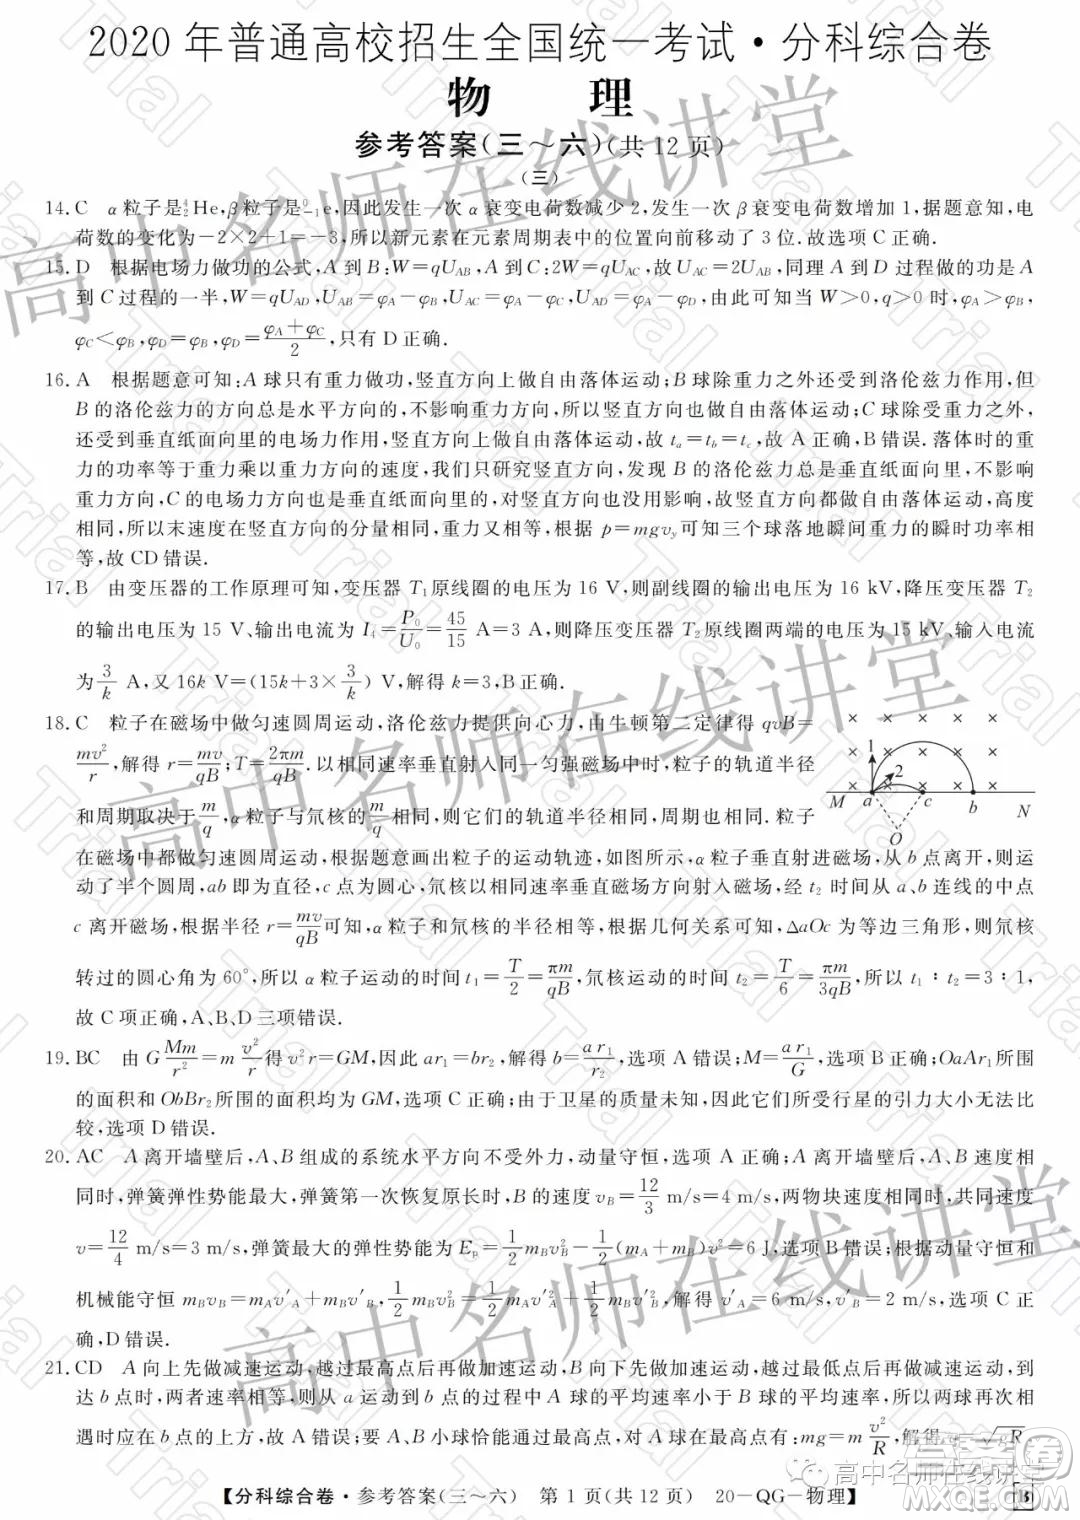 2020 年普通高校招生全国统一考试·分科综合卷
物 理
参考答案(三～六)(共 12 页)
(三)
14. C α粒子是⁴₂He,β粒子是⁰₋₁e,因此发生一次 α 衰变电荷数减少 2,发生一次 β 衰变电荷数增加 1,据题意知,电
荷数的变化为−2×2+1=−3,所以新元素在元素周期表中的位置向前移动了 3 位.故选项 C 正确.
15. D 根据电场力做功的公式,A 到 B:W=qU_AB,A 到 C:2W=qU_AC,故 U_AC=2U_AB,同理 A 到 D 过程做的功是 A
到 C 过程的一半,W=qU_AD,U_AB=φ_A−φ_B,U_AC=φ_A−φ_C,U_AD=φ_A−φ_D,由此可知当 W>0,q>0 时,φ_A>φ_B,
φ_C<φ_B,φ_D=φ_B,φ_D=(φ_A+φ_C)/2,只有 D 正确.
16. A 根据题意可知:A 球只有重力做功,竖直方向上做自由落体运动;B 球除重力之外还受到洛伦兹力作用,但
B 的洛伦兹力的方向总是水平方向的,不影响重力方向,所以竖直方向也做自由落体运动;C 球除受重力之外,
还受到垂直纸面向里的电场力作用,竖直方向上做自由落体运动,故 tₐ=t_b=t_c,故 A 正确,B 错误.落体时的重
力的功率等于重力乘以重力方向的速度,我们只研究竖直方向,发现 B 的洛伦兹力总是垂直纸面方向,不影响
重力方向,C 的电场力方向也是垂直纸面向里的,对竖直方向也没用影响,故竖直方向做自由落体运动,高度
相同,所以末速度在竖直方向的分量相同,重力又相等,根据 p=mgv_y 可知三个球落地瞬间重力的瞬时功率相
等,故 CD 错误.
17. B 由变压器的工作原理可知,变压器 T₁ 原线圈的电压为 16 V,则副线圈的输出电压为 16 kV,降压变压器 T₂
的输出电压为 15 V、输出电流为 I₄=P₀/U₀=45/15 A=3 A,则降压变压器 T₂原线圈两端的电压为 15 kV、输入电流
为3/k A,又 16k V=(15k+3×3/k) V,解得 k=3,B 正确.
18. C 粒子在磁场中做匀速圆周运动,洛伦兹力提供向心力,由牛顿第二定律得 qvB=
mv²/r,解得 r=mv/qB;T=2πm/qB.以相同速率垂直射入同一匀强磁场中时,粒子的轨道半径
和周期取决于m/q,α粒子与氘核的m/q相同,则它们的轨道半径相同、周期相同.粒子
在磁场中都做匀速圆周运动,根据题意画出粒子的运动轨迹,如图所示,α 粒子垂直射进磁场,从 b 点离开,则运
动了半个圆周,ab 即为直径,c 点为圆心,氘核以相同速率垂直磁场方向射入磁场,经 t₂ 时间从 a、b 连线的中点
c 离开磁场,根据半径 r=mv/qB可知,α 粒子和氘核的半径相等,根据几何关系可知,△aOc 为等边三角形,则氘核
转过的圆心角为 60°,所以 α 粒子运动的时间 t₁=T/2=πm/qB,氘核运动的时间 t₂=T/6=πm/3qB,所以 t₁∶t₂=3∶1,
故 C 项正确,A、B、D 三项错误.
1
2
M a c b N
O
19. BC 由 G Mm/r²=m v²/r得 v²r=GM,因此 ar₁=br₂,解得 b=ar₁/r₂,选项 A 错误;M=ar₁/G,选项 B 正确;OaAr₁所围
的面积和 ObBr₂所围的面积均为 GM,选项 C 正确;由于卫星的质量未知,因此它们所受行星的引力大小无法比
较,选项 D 错误.
20. AC A 离开墙壁后,A、B 组成的系统水平方向不受外力,动量守恒,选项 A 正确;A 离开墙壁后,A、B 速度相
同时,弹簧弹性势能最大,弹簧第一次恢复原长时,B 的速度 v_B=12/3 m/s=4 m/s,两物块速度相同时,共同速度
v=12/4 m/s=3 m/s,弹簧最大的弹性势能为 E_p=1/2 m_Bv_B²−1/2(m_A+m_B)v²=6 J,选项 B 错误;根据动量守恒和
机械能守恒 m_Bv_B=m_Av′_A+m_Bv′_B,1/2 m_Bv_B²=1/2 m_Av′_A²+1/2 m_Bv′_B²,解得 v′_A=6 m/s,v′_B=2 m/s,选项 C 正
确,D 错误.
21. CD A 向上先做减速运动,越过最高点后再做加速运动,B 向下先做加速运动,越过最低点后再做减速运动,到
达 b 点时,两者速率相等,则从 a 运动到 b 点的过程中 A 球的平均速率小于 B 球的平均速率,所以两球再次相
遇时应在 b 点的上方,故 A 错误;要 A、B 小球恰能通过最高点,对 A 球在最高点有:mg=m v²/R,解得
【分科综合卷·参考答案(三～六) 第 1 页(共 12 页) 20−QG−物理】
高中名师在线讲堂
高中名师在线讲堂
高中名师在线讲堂
高中名师在线讲堂
Trial
答案圈
MXQE.COM